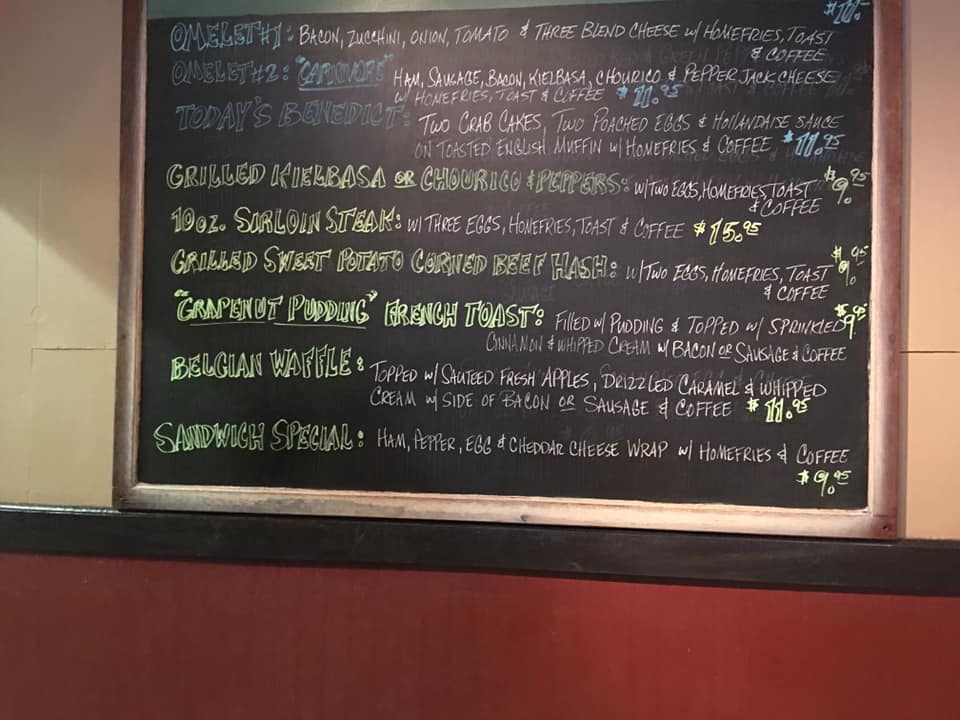 OMELET #1: BACON, ZUCCHINI, ONION, TOMATO & THREE BLEND CHEESE W/ HOMEFRIES, TOAST
& COFFEE
OMELET #2: "CARNIVORE" HAM, SAUSAGE, BACON, KIELBASA, CHOURICO & PEPPER JACK CHEESE
W/ HOMEFRIES, TOAST & COFFEE $11.95
TODAY'S BENEDICT: TWO CRAB CAKES, TWO POACHED EGGS & HOLLANDAISE SAUCE
ON TOASTED ENGLISH MUFFIN W/ HOMEFRIES & COFFEE $11.95
GRILLED KIELBASA OR CHOURICO & PEPPERS: W/ TWO EGGS, HOMEFRIES, TOAST $9.95
& COFFEE
10OZ. SIRLOIN STEAK: W/ THREE EGGS, HOMEFRIES, TOAST & COFFEE $15.95
GRILLED SWEET POTATO CORNED BEEF HASH: W/ TWO EGGS, HOMEFRIES, TOAST $9.95
& COFFEE
"GRAPENUT PUDDING" FRENCH TOAST: FILLED W/ PUDDING & TOPPED W/ SPRINKLED $9.95
CINNAMON & WHIPPED CREAM W/ BACON OR SAUSAGE & COFFEE
BELGIAN WAFFLE: TOPPED W/ SAUTEED FRESH APPLES, DRIZZLED CARAMEL & WHIPPED
CREAM W/ SIDE OF BACON OR SAUSAGE & COFFEE $11.95
SANDWICH SPECIAL: HAM, PEPPER, EGG & CHEDDAR CHEESE WRAP W/ HOMEFRIES & COFFEE
$9.95